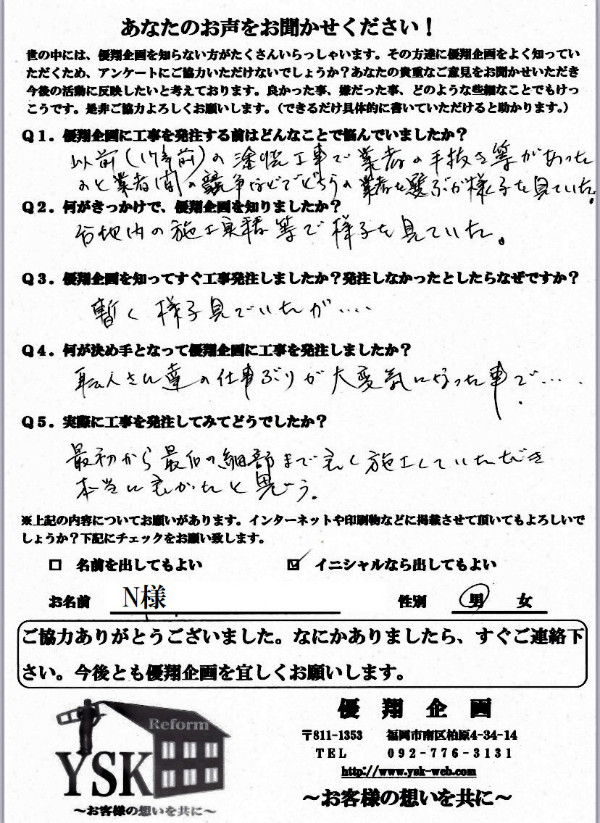 あなたのお声をお聞かせください！
世の中には、優翔企画を知らない方がたくさんいらっしゃいます。その方達に優翔企画をよく知ってい
ただくため、アンケートにご協力いただけないでしょうか？あなたの貴重なご意見をお聞かせいただき
今後の活動に反映したいと考えております。良かった事、嫌だった事、どのような些細なことでもけっ
こうです。是非ご協力よろしくお願いします。（できるだけ具体的に書いていただけると助かります。）
Q1．優翔企画に工事を発注する前はどんなことで悩んでいましたか？
以前（17年前）の塗装工事で業者の手抜き等があった
あと業者間の競争などでどちらの業者を選ぶか様子を見ていた。
Q2．何がきっかけで、優翔企画を知りましたか？
団地内の施工実績等で様子を見ていた。
Q3．優翔企画を知ってすぐ工事発注しましたか？発注しなかったとしたらなぜですか？
暫く様子見でいたが‥‥
Q4．何が決め手となって優翔企画に工事を発注しましたか？
職人さん達の仕事ぶりが大変気になった事で‥‥．
Q5．実際に工事を発注してみてどうでしたか？
最初から最后の細部まで良く施工していただき
本当に良かったと思う。
※上記の内容についてお願いがあります。インターネットや印刷物などに掲載させて頂いてもよろしいで
しょうか？下記にチェックをお願い致します。
□ 名前を出してもよい ☑ イニシャルなら出してもよい
お名前 N様 性別 男 女
ご協力ありがとうございました。なにかありましたら、すぐご連絡下
さい。今後とも優翔企画を宜しくお願いします。
Reform
YSK
～お客様の想いを共に～
優翔企画
〒811-1353 福岡市南区柏原4-34-14
TEL 092-776-3131
http://www.ysk-web.com
～お客様の想いを共に～